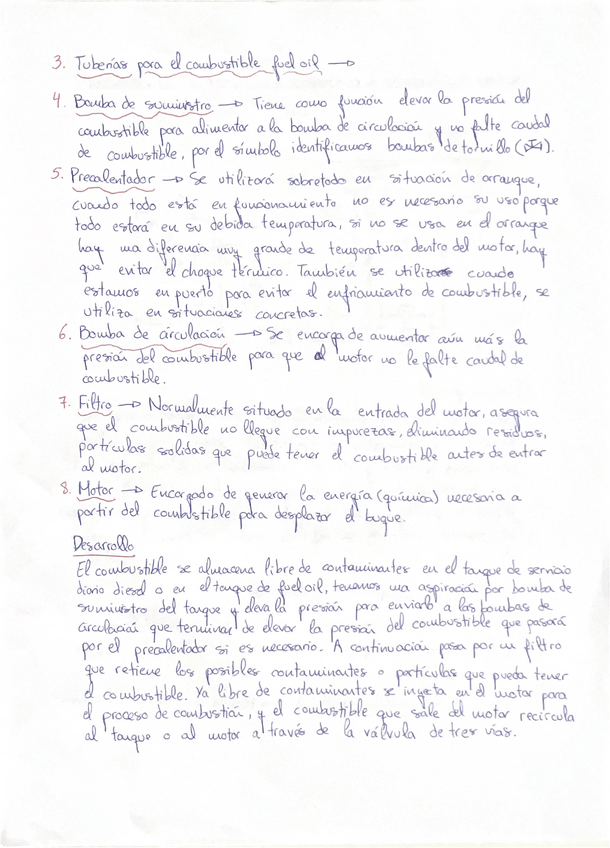 3. Tuberías para el combustible fuel oil →
4. Bomba de suministro → Tiene como función elevar la presión del
combustible para alimentar a la bomba de circulación y no falte caudal
de combustible, por el símbolo identificamos bombas de tornillo ( ).
5. Precalentador → Se utilizará sobretodo en situación de arranque,
cuando todo está en funcionamiento no es necesario su uso porque
todo estará en su debida temperatura, si no se usa en el arranque
hay una diferencia muy grande de temperatura dentro del motor, hay
que evitar el choque térmico. También se utiliza cuando
estamos en puerto para evitar el enfriamiento de combustible, se
utiliza en situaciones concretas.
6. Bomba de circulación → Se encarga de aumentar aún más la
presión del combustible para que al motor no le falte caudal de
combustible.
7. Filtro → Normalmente situado en la entrada del motor, asegura
que el combustible no llegue con impurezas, eliminando residuos,
partículas solidas que puede tener el combustible antes de entrar
al motor.
8. Motor → Encargado de generar la energía (química) necesaria a
partir del combustible para desplazar el buque.
Desarrollo
El combustible se almacena libre de contaminantes en el tanque de servicio
diario diesel o en el tanque de fuel oil, tenemos una aspiración por bomba de
suministro del tanque y eleva la presión para enviarlo a las bombas de
circulación que terminan de elevar la presión del combustible que pasará
por el precalentador si es necesario. A continuación pasa por un filtro
que retiene los posibles contaminantes o partículas que pueda tener
el combustible. Ya libre de contaminantes se ingeta en el motor para
el proceso de combustión, y el combustible que sale del motor recircula
al tanque o al motor a través de la válvula de tres vías.